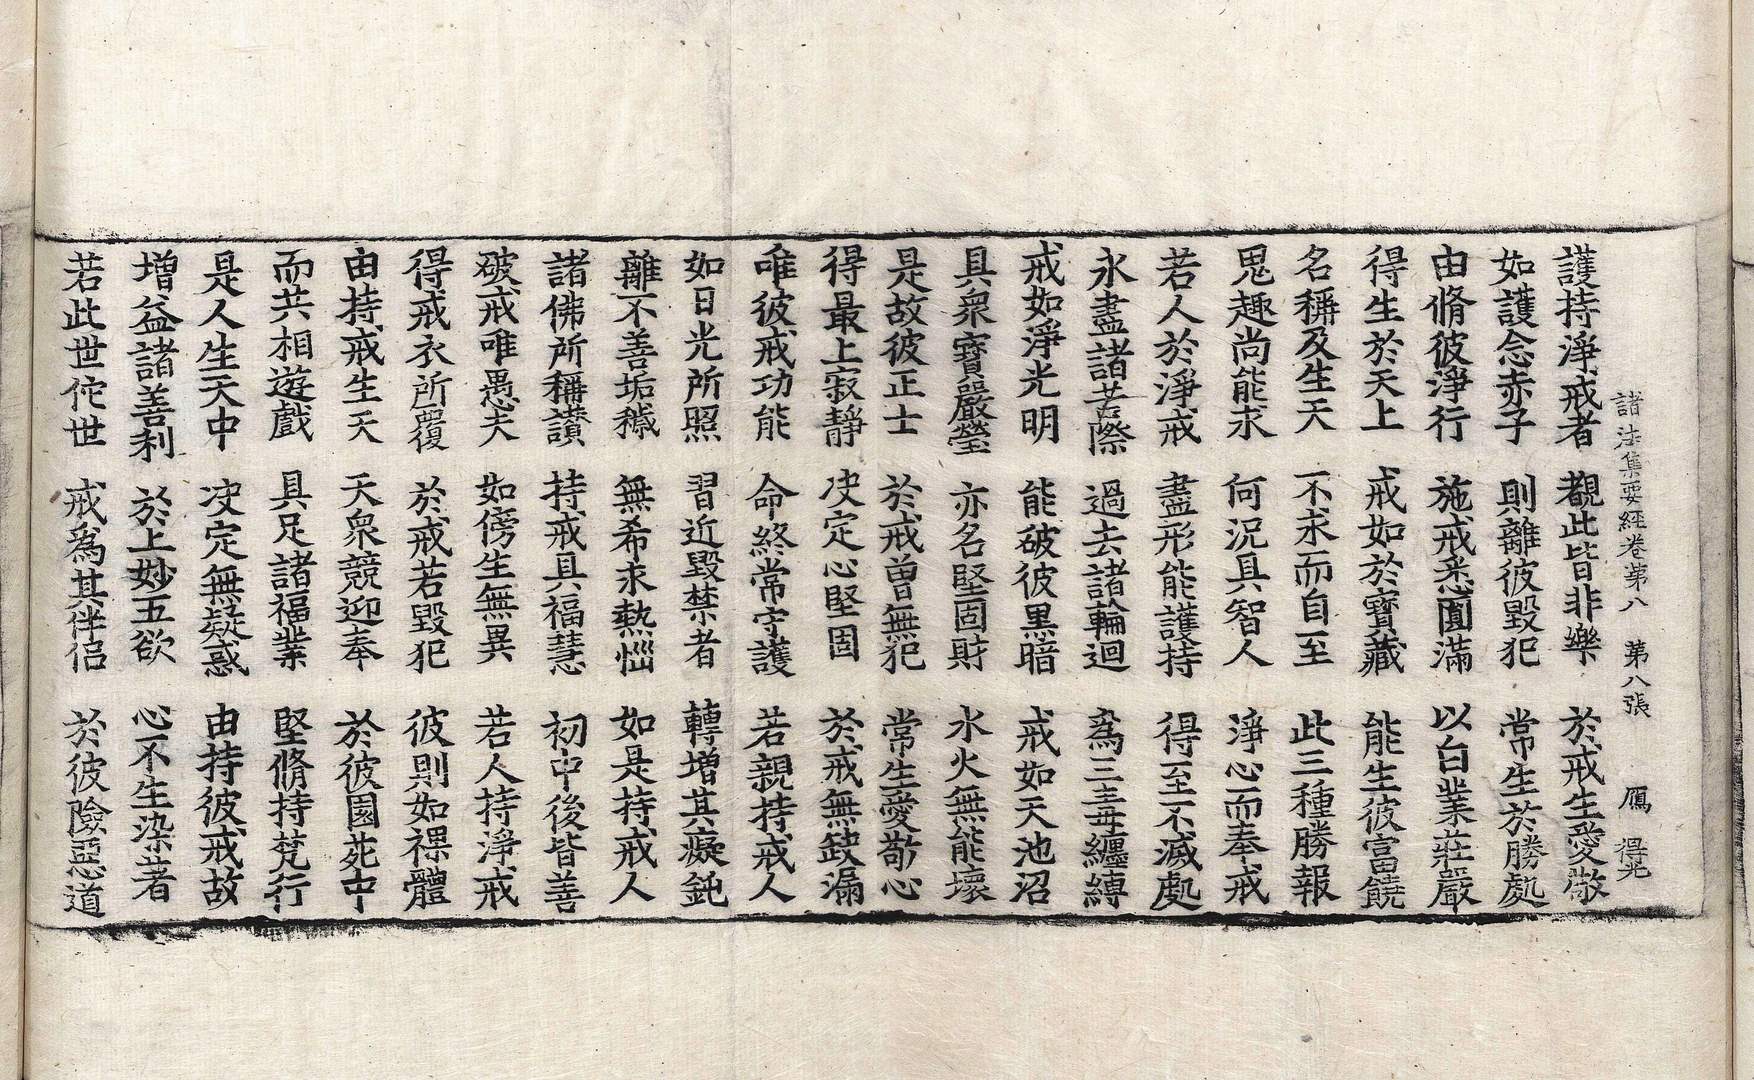 諸法集要經卷第八　第八張　鴈　得光
護持淨戒者　覩此皆非樂　於戒生愛敬
如護念赤子　則離彼毀犯　常生於勝處
由脩彼淨行　施戒悉圓滿　以白業莊嚴
得生於天上　戒如於寶藏　能生彼富饒
名稱及生天　不求而自至　此三種勝報
鬼趣尚能求　何況具智人　淨心而奉戒
若人於淨戒　盡形能護持　得至不滅處
永盡諸苦際　過去諸輪迴　爲三毒纏縛
戒如淨光明　能破彼黑暗　戒如天池沼
具衆寶嚴瑩　亦名堅固財　水火無能壞
是故彼正士　於戒曾無犯　常生愛敬心
得最上寂靜　決定心堅固　於戒無缺漏
唯彼戒功能　命終常守護　若親持戒人
如日光所照　習近毀禁者　轉增其癡鈍
離不善垢穢　無希求熱惱　如是持戒人
諸佛所稱讃　持戒具福慧　初中後皆善
破戒唯愚夫　如傍生無異　若人持淨戒
得戒衣所覆　於戒若毀犯　彼則如裸體
由持戒生天　天衆競迎奉　於彼園苑中
而共相遊戲　具足諸福業　堅脩持梵行
是人生天中　決定無疑惑　由持彼戒故
增益諸善利　於上妙五欲　心不生染著
若此世佗世　戒爲其伴侶　於彼險惡道